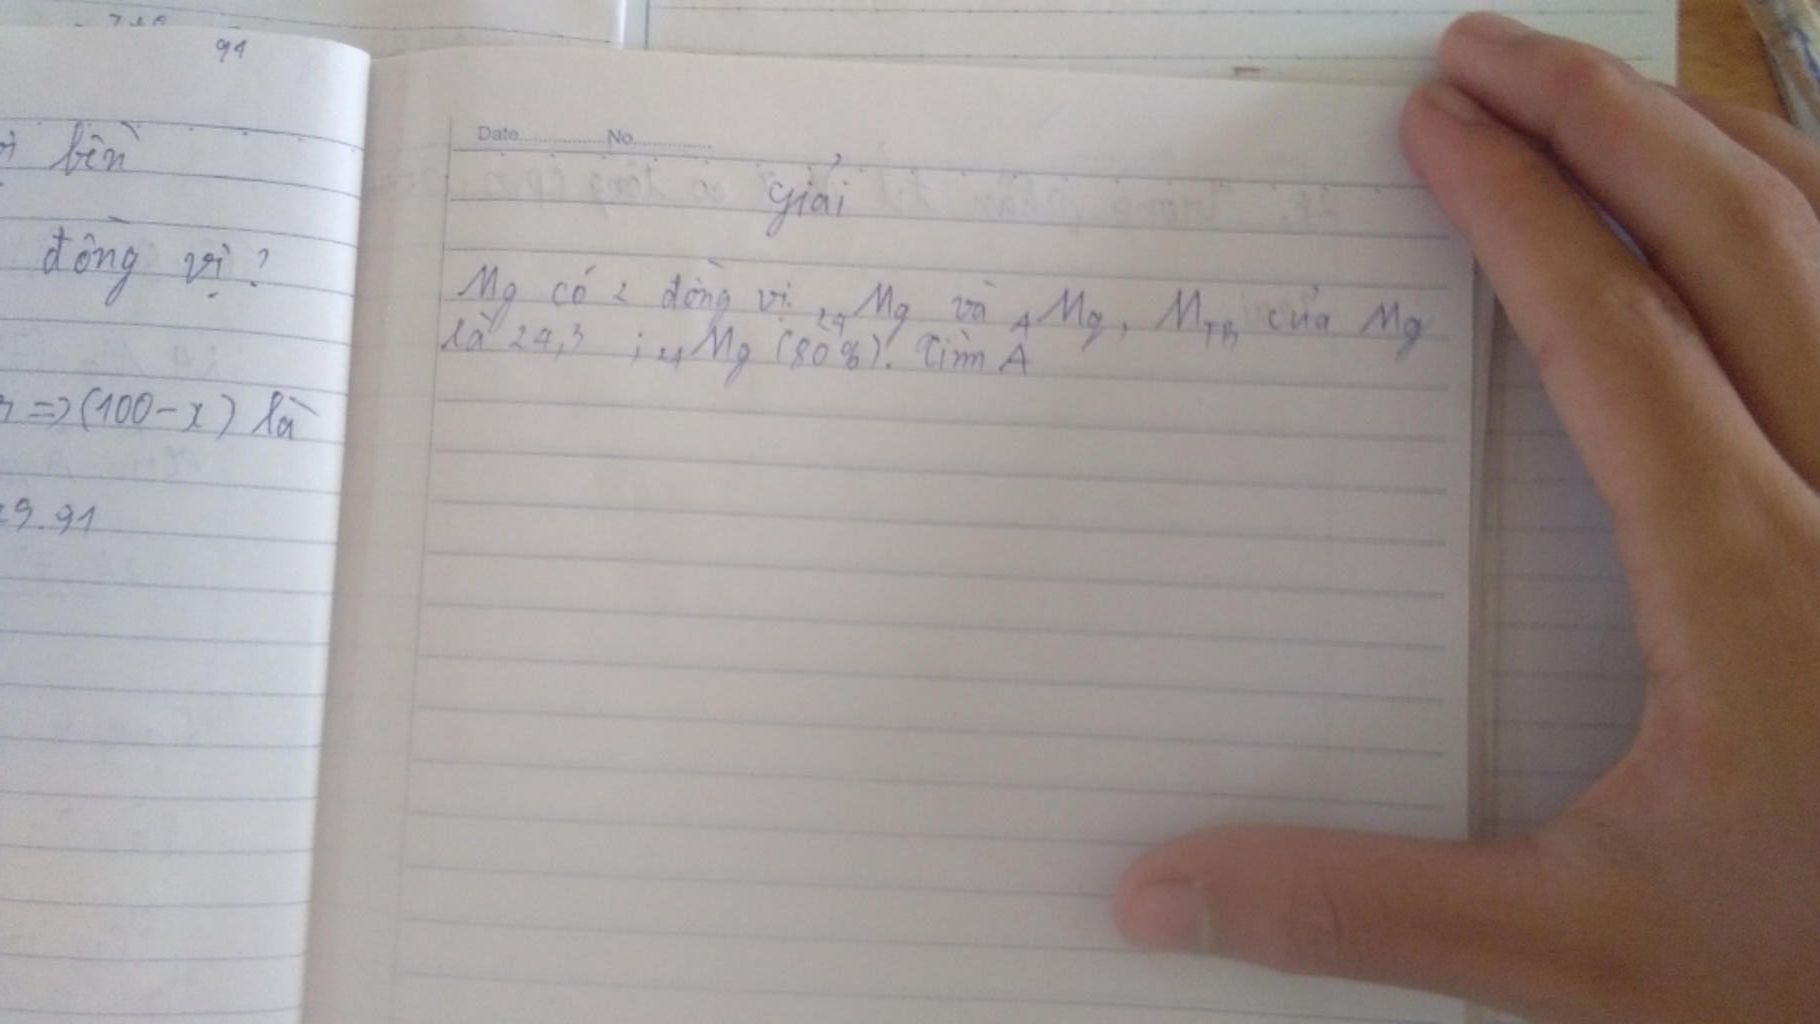 91
bền
đồng vị?
=> (100-x) là
29.91
Date............No............
Giải
Mg có 2 đồng vị 24Mg và AMg, MTB của Mg
là 24,3 ; 24Mg (80%). Tìm A